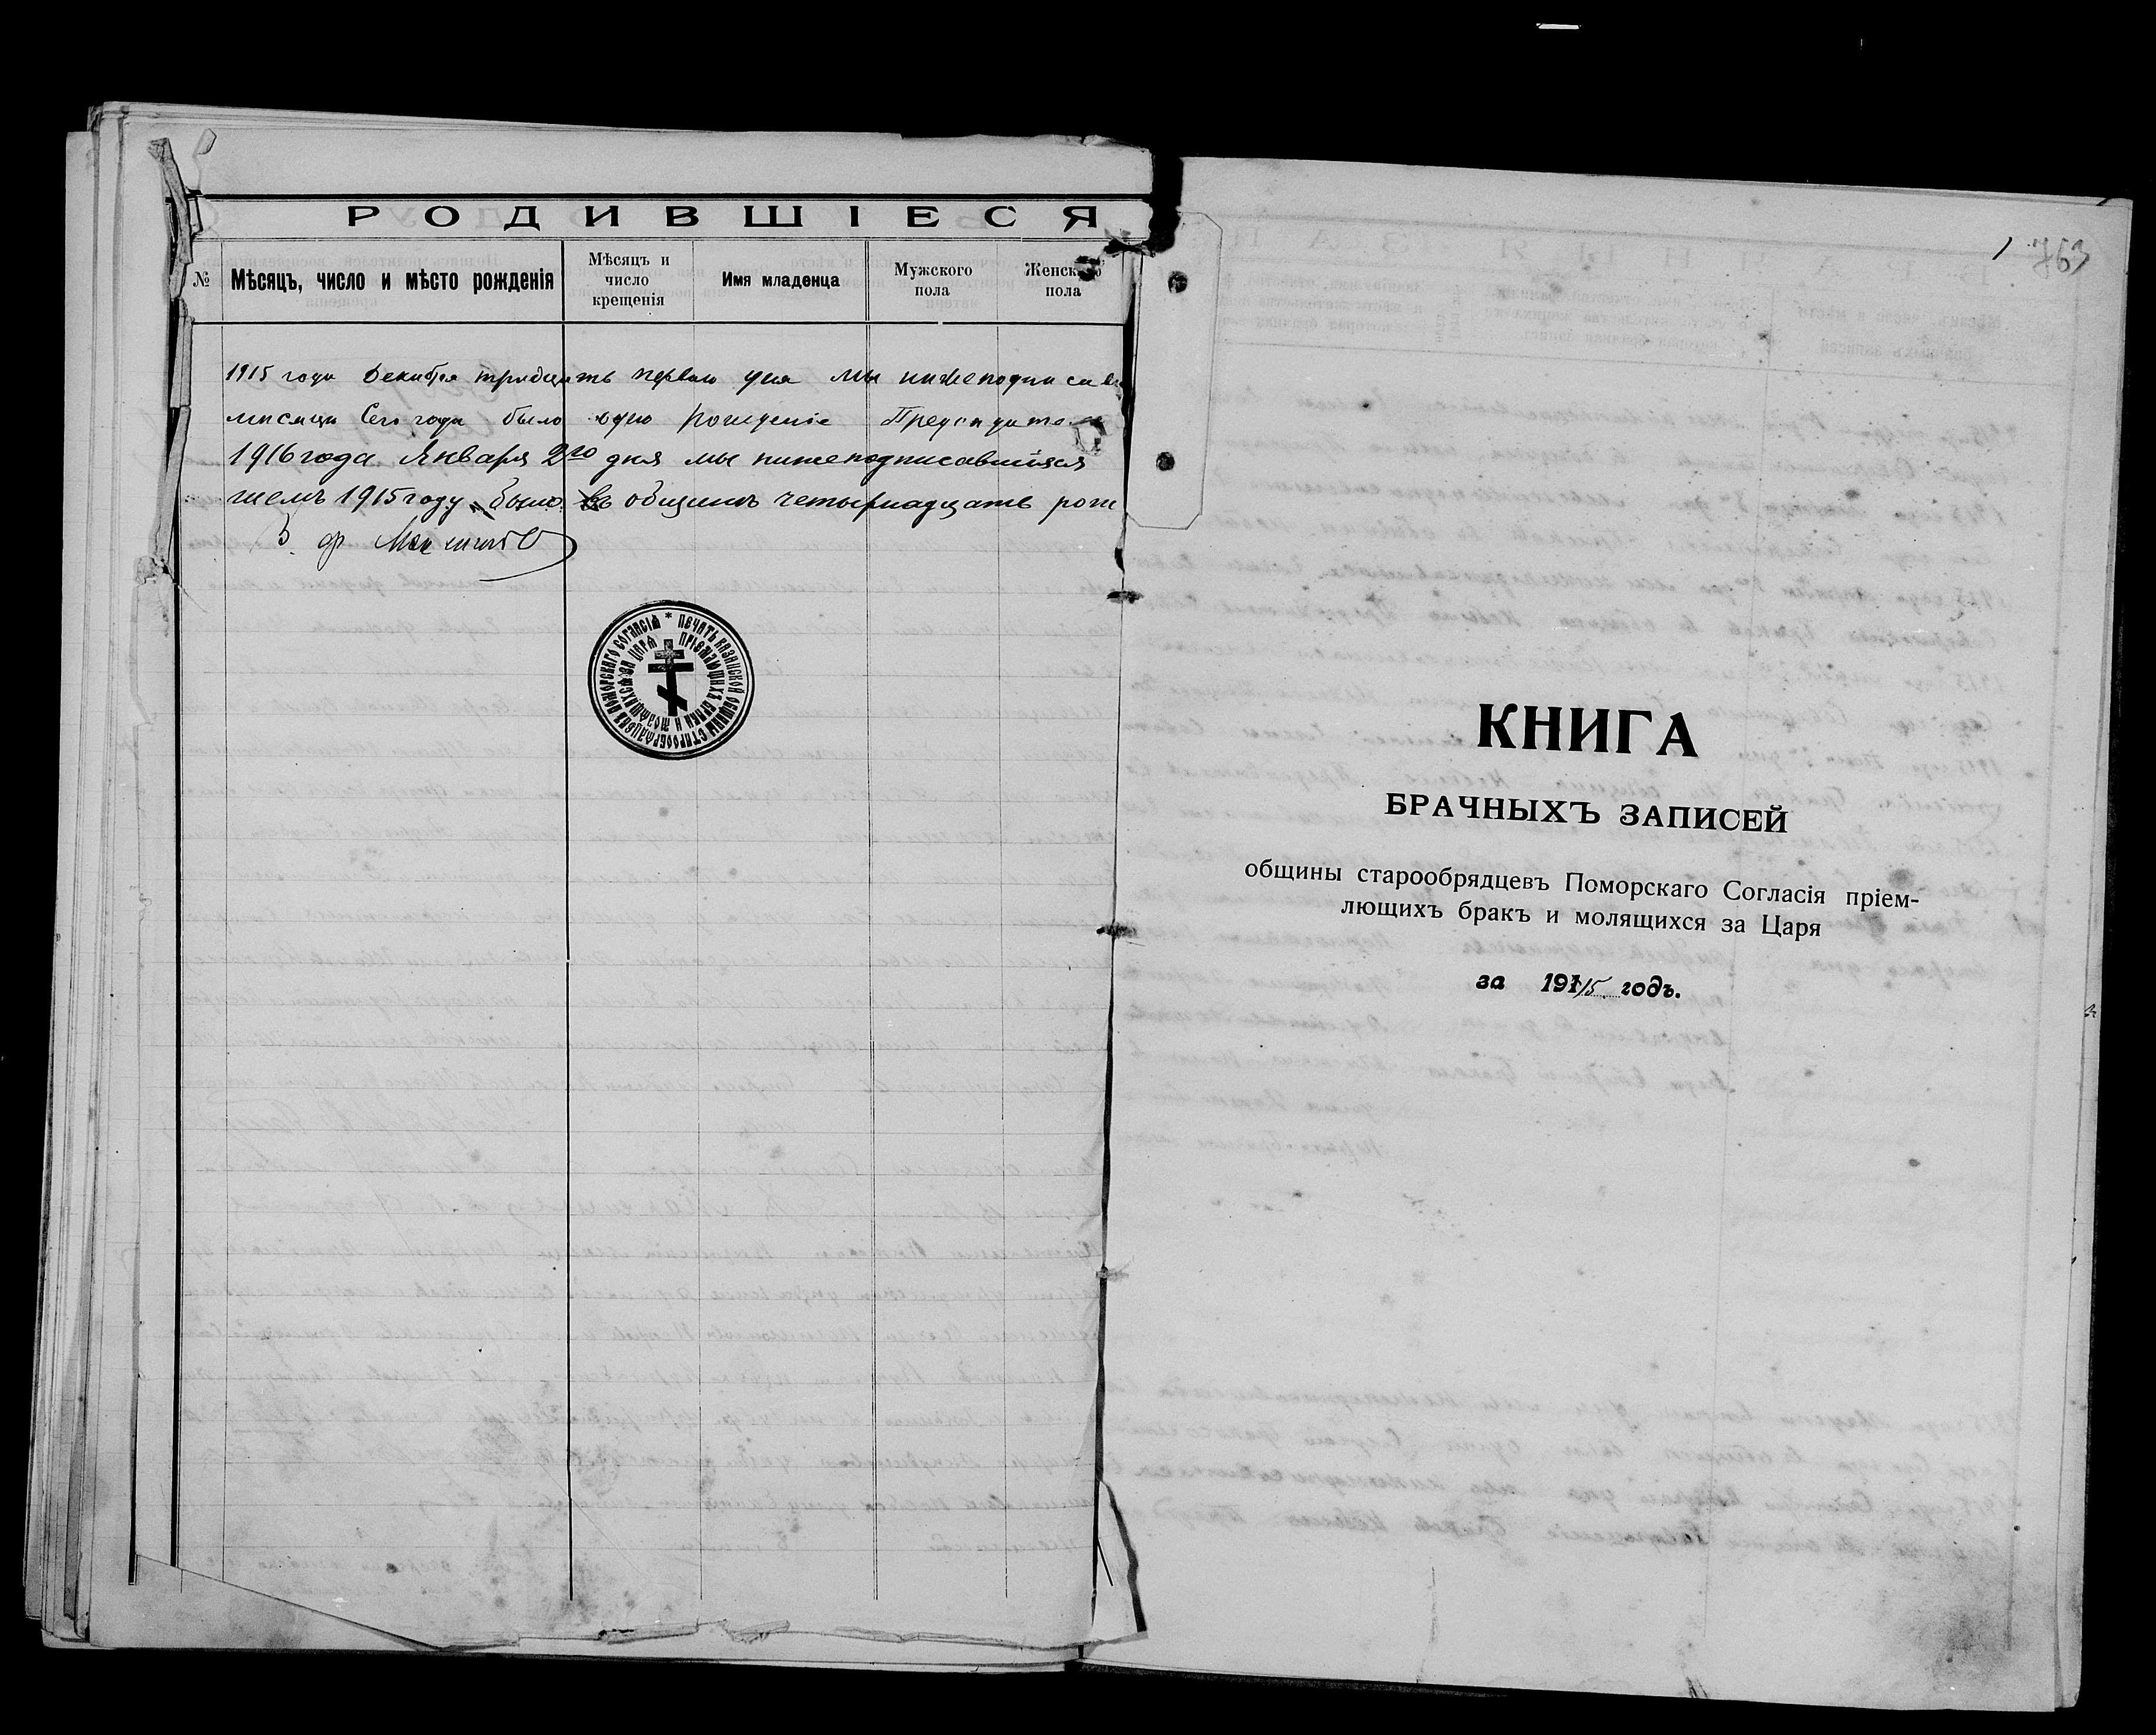 РОДИВШІЕСЯ
№
Мѣсяцъ, число и мѣсто рожденія
Мѣсяцъ и
число
крещенія
Имя младенца
Мужского
пола
Женского
пола
1915 года Декабря тридцать перваго дня мы нижеподписав
мисяцы Сего года было одно рожденіе Председател
1916 года Января 2го дня мы нижеподписавшіяся
шемъ 1915 году было въ общинѣ четырнадцать рож
ПЕЧАТЬ КАЗАНСКОЙ ОБЩИНЫ СТАРООБРЯДЦЕВЪ ПОМОРСКАГО СОГЛАСІЯ
ПРІЕМЛЮЩИХЪ БРАКИ И МОЛЯЩИХСЯ ЗА ЦАРЯ
763
КНИГА
БРАЧНЫХЪ ЗАПИСЕЙ
общины старообрядцевъ Поморскаго Согласія пріем-
лющихъ бракъ и молящихся за Царя
за 1915 годъ.